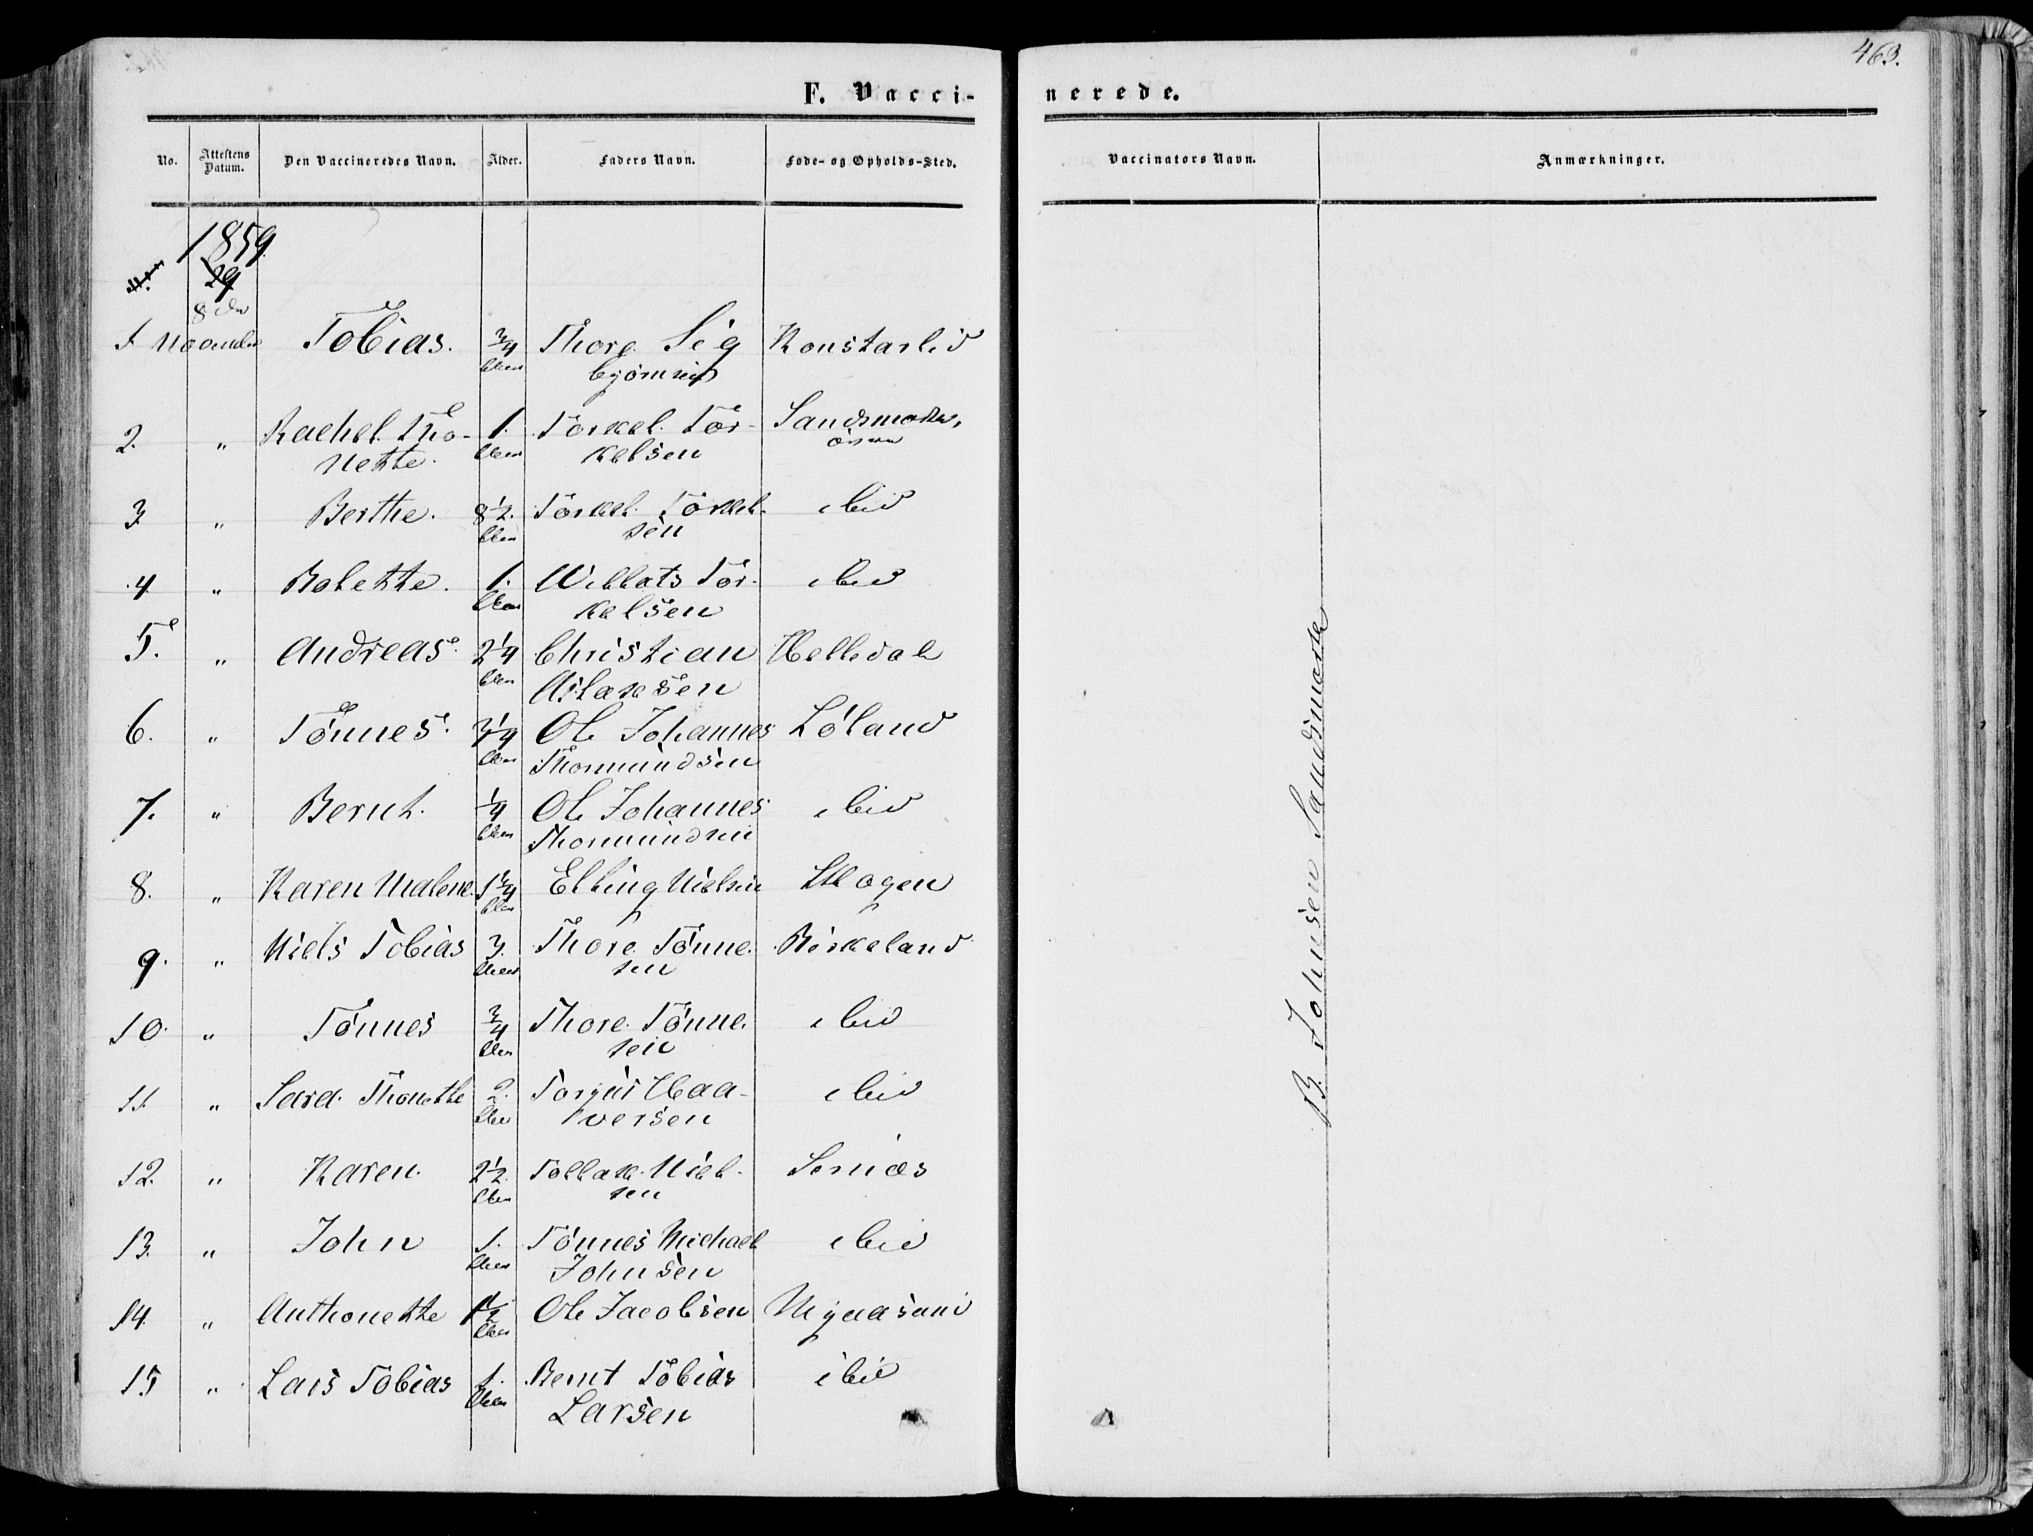 463.
F. Vacci-
nerede.
No.
Attestens Datum.
Den Vaccineredes Navn.
Alder.
Faders Navn.
Føde- og Opholds-Sted.
Vaccinators Navn.
Anmærkninger.
1859
29
8de
1. Tobias. 3/4 Thore Sig
Aar bjørnsen
2. " Rachel Tho- 1. Torkel Tor- Sandsmark
nette. Aar kelsen
3. " Berthe. 8 1/2. Torkel Torkel- ibid
Aar sen
4. " Bolette. 1. Willats Tor- ibid
Aar kelsen
5. " Andreas. 2 1/4 Christian Helledal
Aar Aslaksen
6. " Tønnes. 3 1/4 Ole Johannes Løland
Aar Thormundsen
7. " Bernt. 1/4 Ole Johannes ibid
Aar Thormundsen
8. " Karen Malene 1 1/4 Elling Nielsen
Aar
9. " Niels Tobias 3. Thore Tønne- Birkeland
Aar sen
10. " Tønnes 3/4 Thore Tønne- ibid
Aar sen
11. " Sara Thonette 2. Torgus Haa- ibid
Aar versen
12. " Karen. 2 1/2. Tollak Niel- Seniæs
Aar sen
13. " John 1. Tønnes Michael ibid
Aar Johnsen
14. " Anthonette 1 1/2 Ole Jacobsen
Aar
15 " Lars Tobias 1. Bernt Tobias ibid
Aar Larsen
B. Johnsen Sandsmark